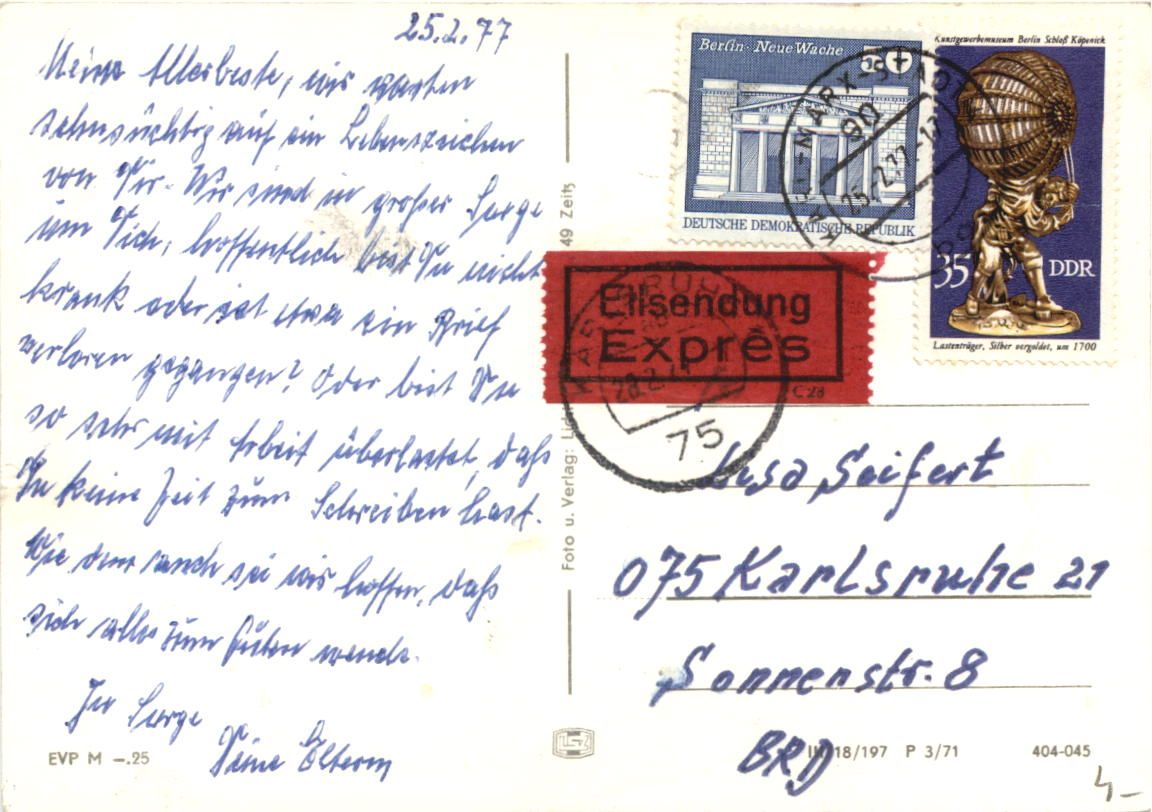 25.2.77
Meine Allerbeste, wir warten
sehnsüchtig auf ein Lebenszeichen
von Dir. Wir sind in großer Sorge
um Dich, hoffentlich bist Du nicht
krank oder ist etwa ein Brief
verloren gegangen? Oder bist Du
so sehr mit Arbeit überlastet, daß
Du keine Zeit zum Schreiben hast.
Wie dem auch sei wir hoffen, daß
sich alles zum Guten wende.
In Sorge
Deine Eltern
EVP M –.25
Foto u. Verlag: 49 Zeitz
Berlin · Neue Wache
50+
DEUTSCHE DEMOKRATISCHE REPUBLIK
Kunstgewerbemuseum Berlin Schloß Köpenick
35 DDR
Lastenträger, Silber vergoldet, um 1700
KARL-MARX-STADT
90
25.-2.77.-17
Eilsendung
Exprès
C 28
KARLSRUHE
75
Seifert
075 Karlsruhe 21
Sonnenstr. 8
BRD
18/197 P 3/71
404-045
4,–